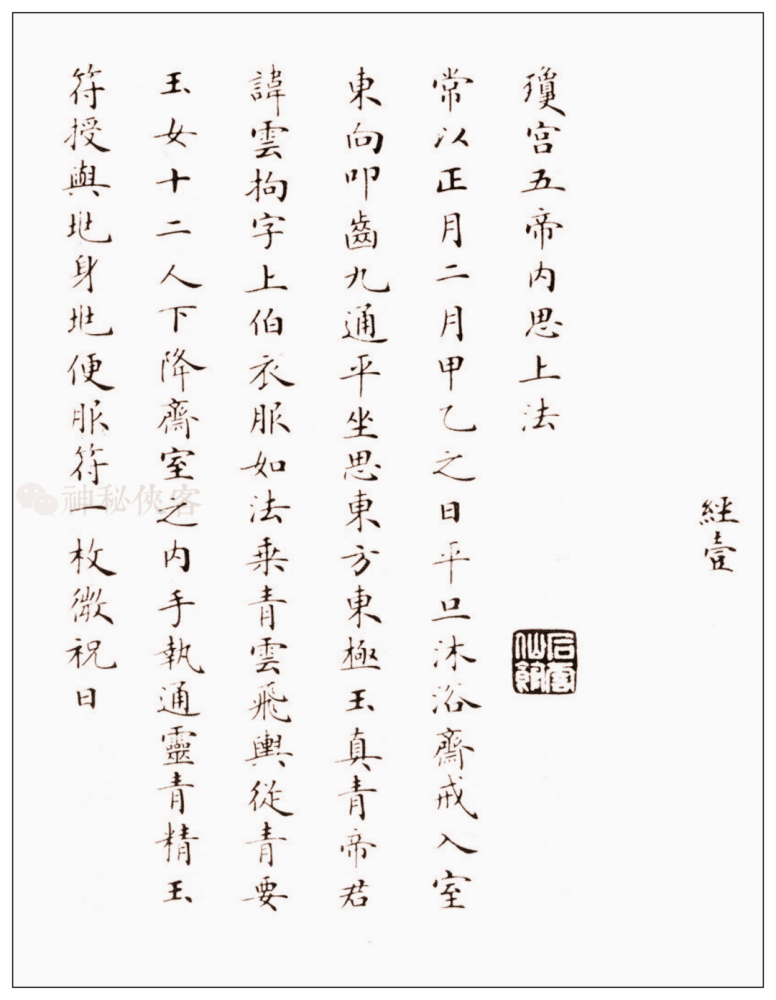 經壹
瓊宫五帝内思上法
常以正月二月甲乙之日平旦沐浴齋戒入室
東向叩齒九通平坐思東方東極玉真青帝君
諱雲拘字上伯衣服如法乘青雲飛輿從青要
玉女十二人下降齋室之内手執通靈青精玉
符授與兆身兆便服符一枚微祝曰
神秘俠客